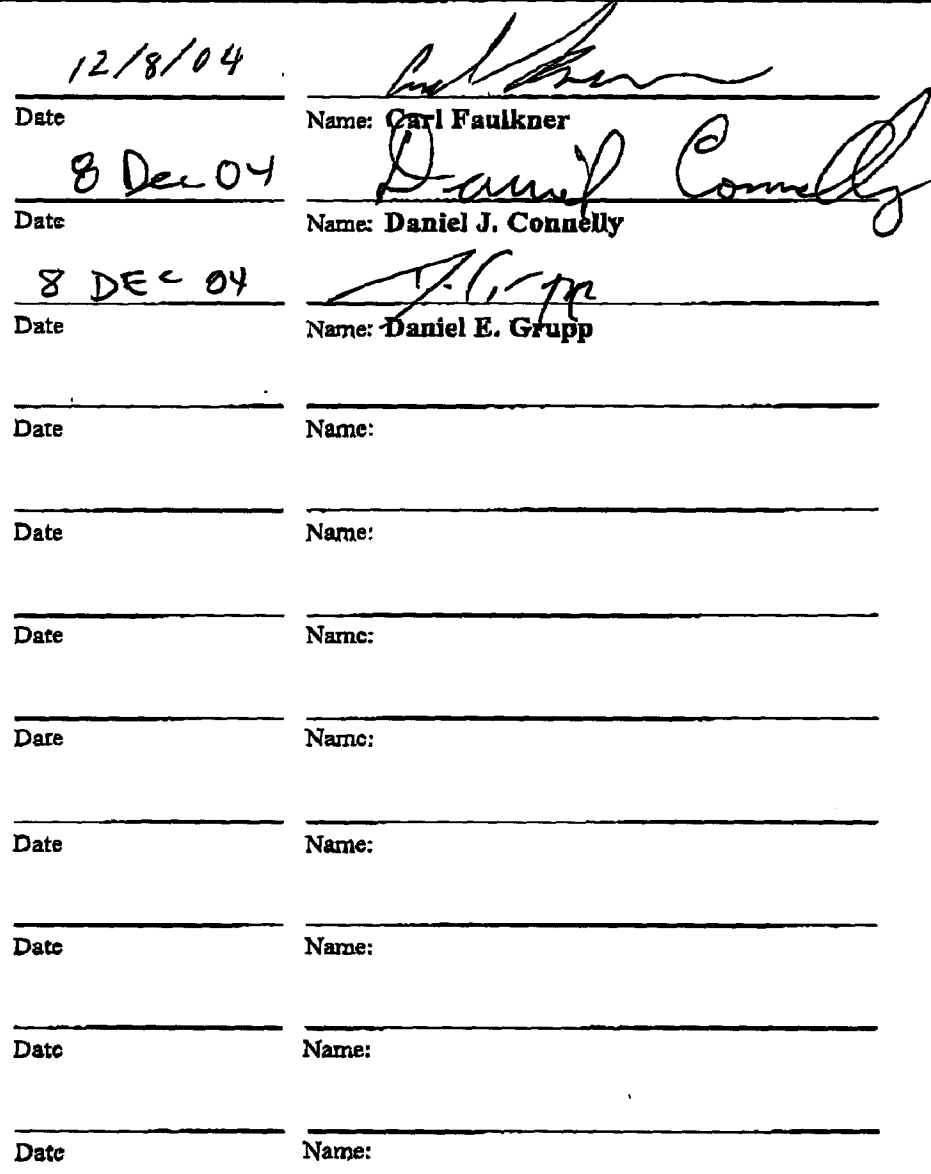 12/8/04
Date Name: Carl Faulkner
8 Dec 04 Daniel Connelly
Date Name: Daniel J. Connelly
8 DEC 04 D. Grupp
Date Name: Daniel E. Grupp
Date Name:
Date Name:
Date Name:
Date Name:
Date Name:
Date Name:
Date Name:
Date Name: